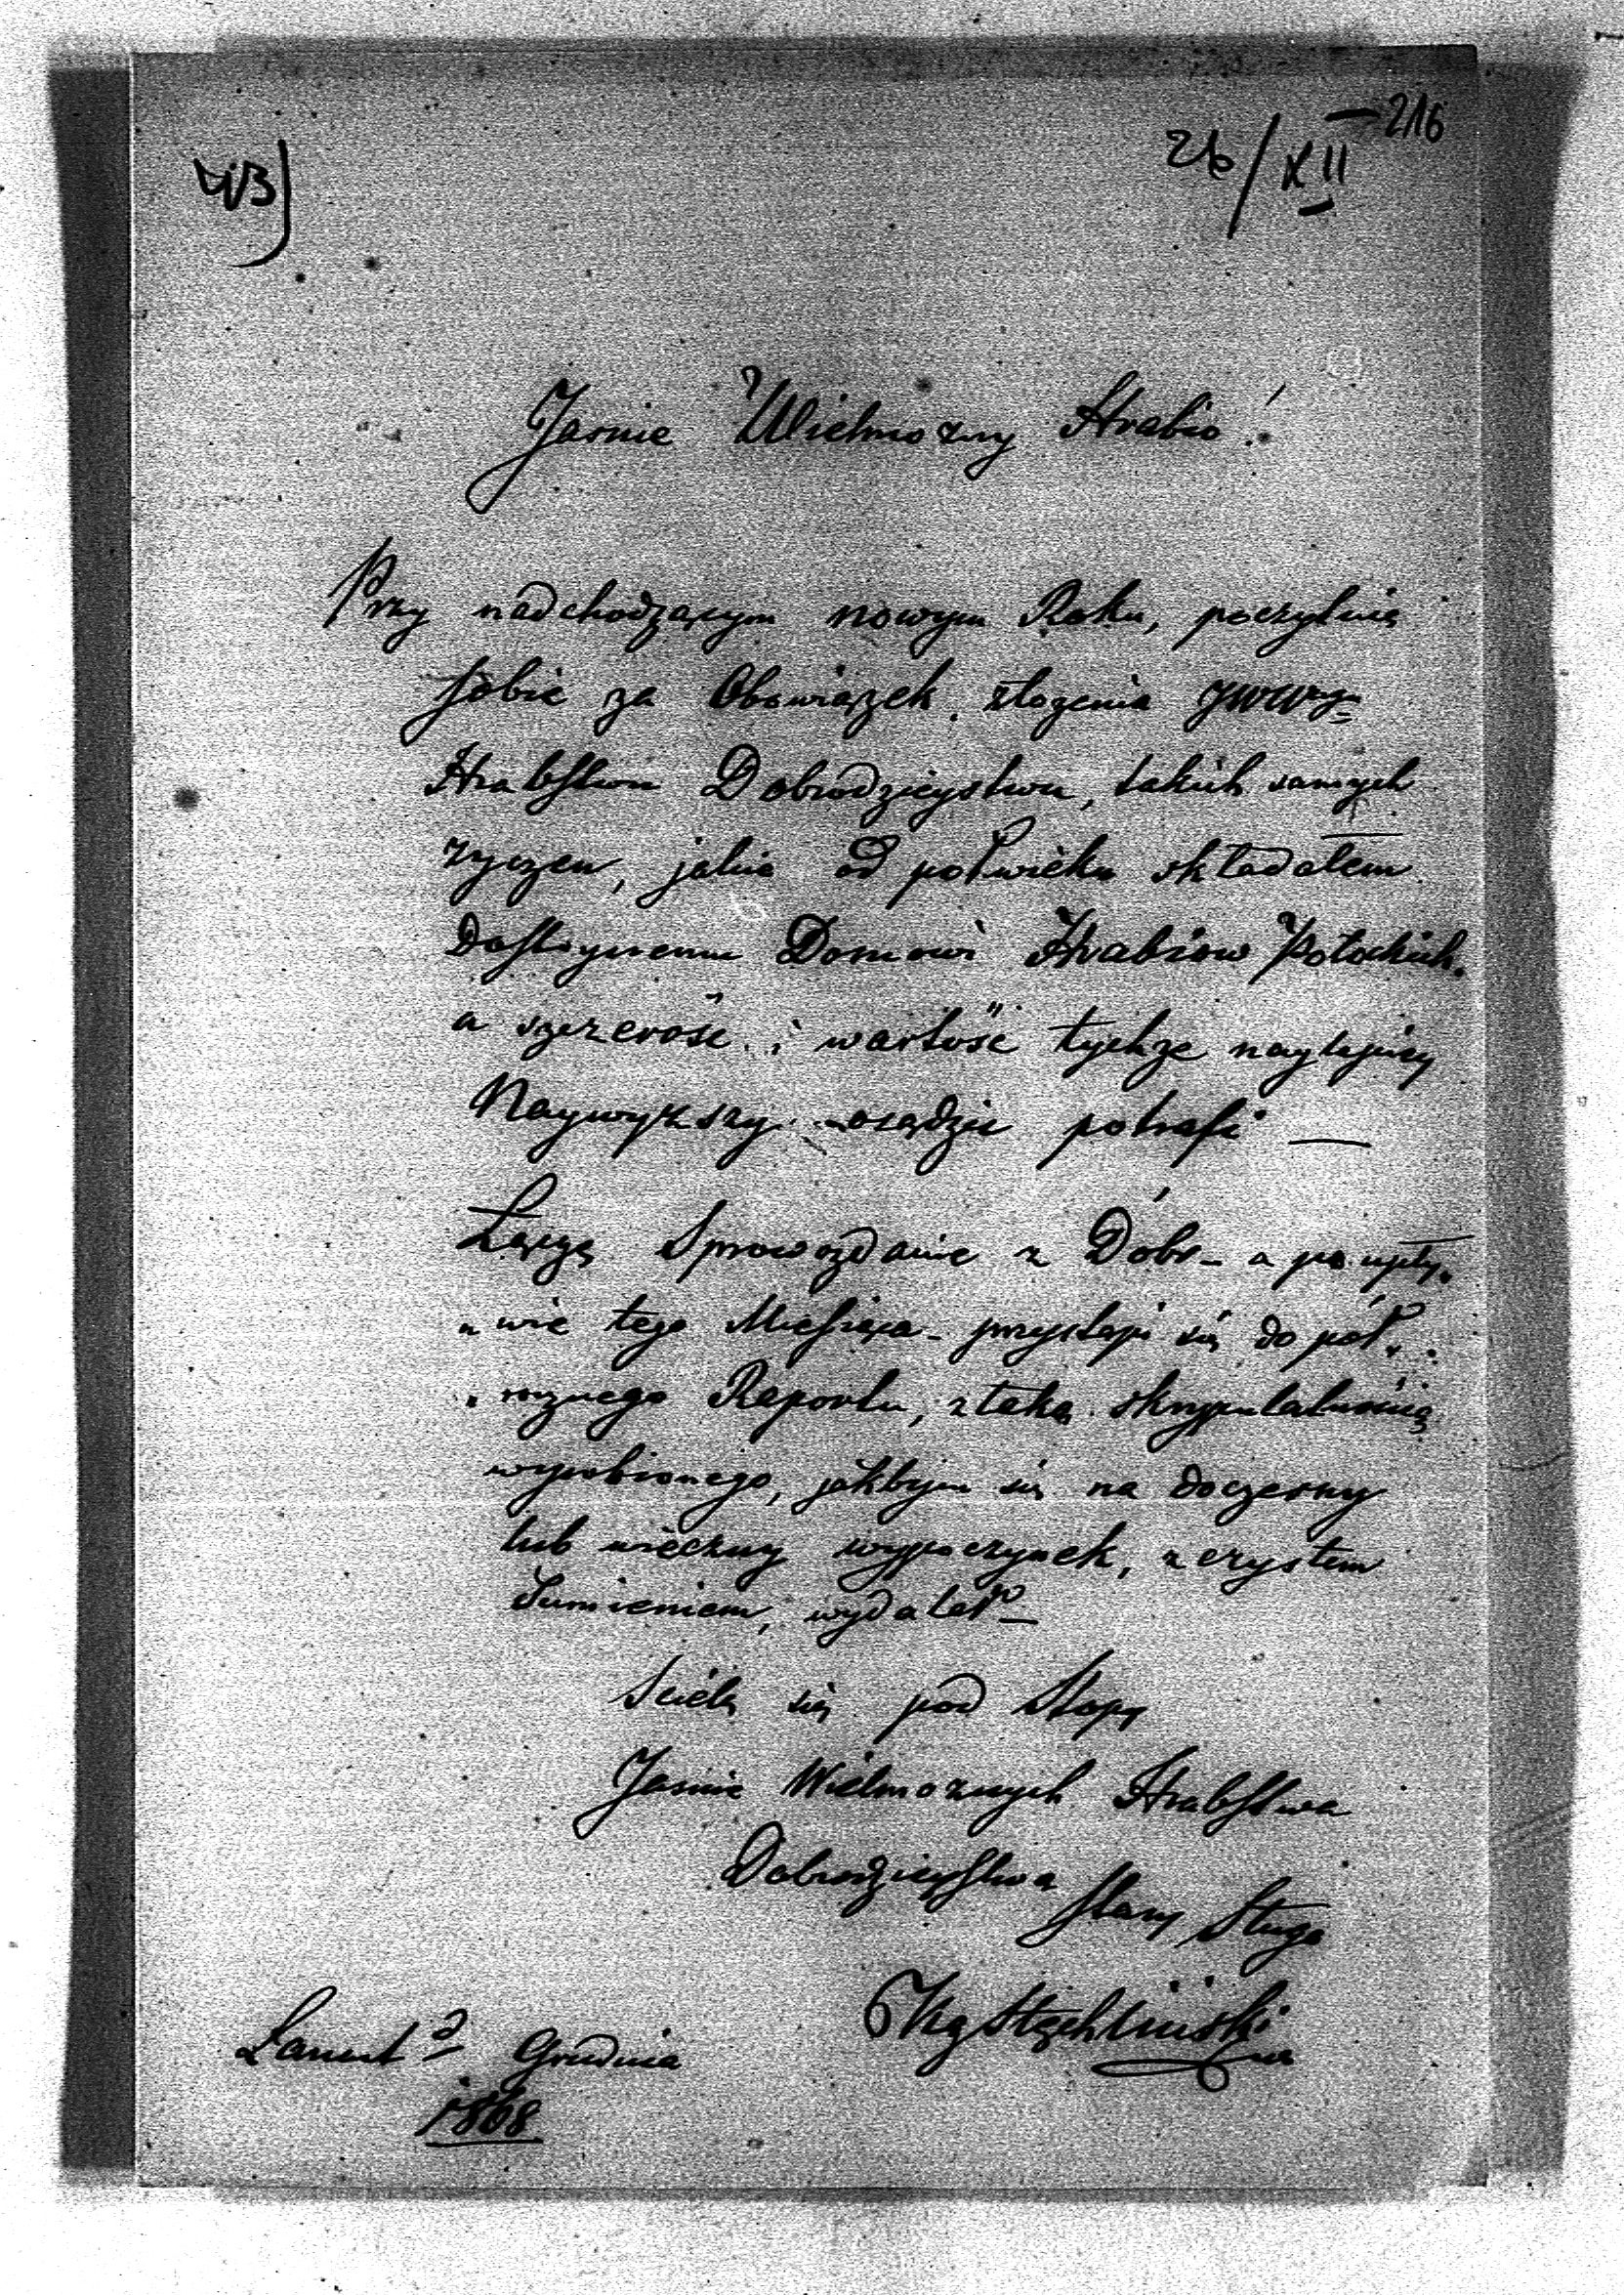 216
26/XII
Jasnie Wielmozny Hrabio!
Przy nadchodzącym nowym Roku, poczytuię
sobie za Obowiązek złozenia
Hrabstwu Dobrodzieystwu, takich samych
zyczen, jakie od półwieku składałem
Dostoynemu Domowi Hrabiow Potockich,
a szczerość i wartość tychze naylepiey
Naywyższy osądzic potrafi —
Łączę Sprawozdanie z Dóbr – a po upły„
„wie tego Miesiąca – przystąpi się do pół„
„rocznego Raportu, z taką skrupulatnością
wyrobionego, jakbym się na doczesny
lub wieczny wypoczynek, z czystem
Sumieniem, wydalał –
Scielę się pod Stopy
Jasnie Wielmoznych Hrabstwa
Dobrodzieystwa
Stary Sługa
Łancut Grudnia
1868